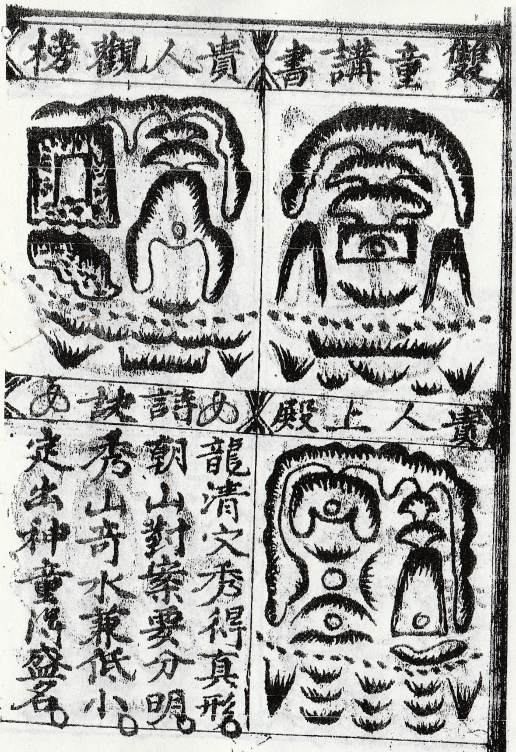 雙童講書
貴人觀榜
貴人上殿
詩訣
龍清穴秀得真形
朝山對案要分明
秀山奇水兼低小
定出神童得盛名